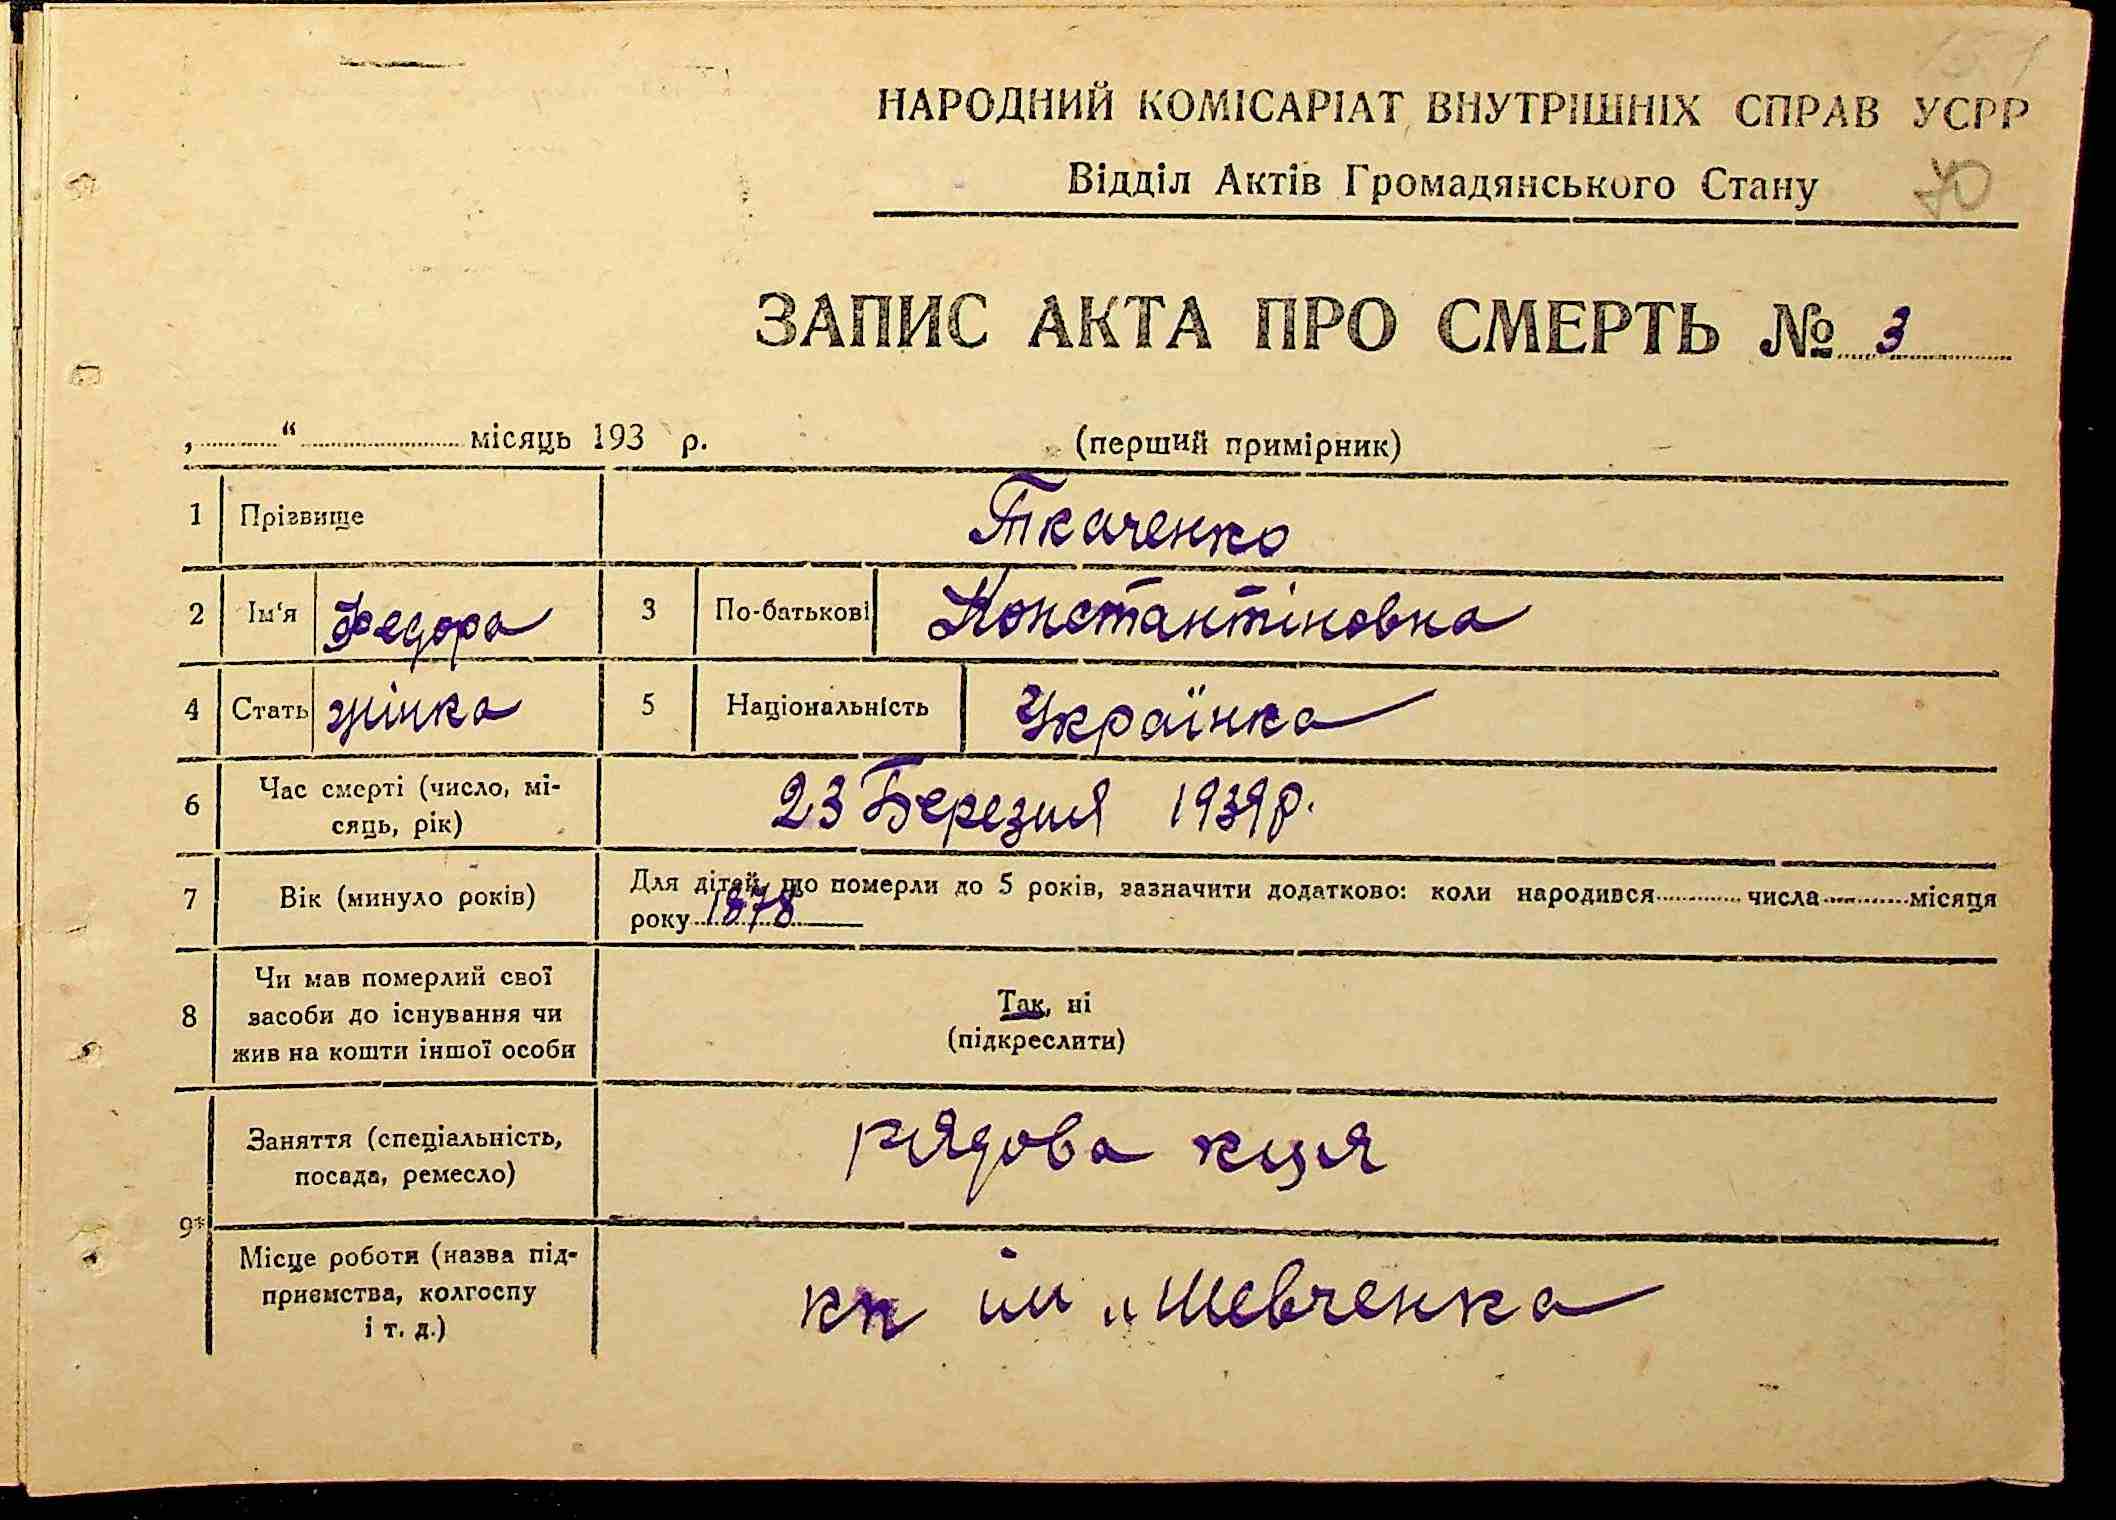 НАРОДНИЙ КОМІСАРІАТ ВНУТРІШНІХ СПРАВ УСРР
Відділ Актів Громадянського Стану 70
ЗАПИС АКТА ПРО СМЕРТЬ № 3
„ “ місяць 193 р. (перший примірник)
1 Прізвище Ткаченко
2 Ім‘я Федора 3 По-батькові Константіновна
4 Стать жінка 5 Національність Українка
6 Час смерті (число, мі-
сяць, рік) 23 Березня 1939 р.
7 Вік (минуло років) Для дітей, що померли до 5 років, зазначити додатково: коли народився числа місяця
року 1878
8 Чи мав померлий свої
засоби до існування чи
жив на кошти іншої особи
Так, ні
(підкреслити)
9* Заняття (спеціальність,
посада, ремесло) рядова
Місце роботи (назва під-
приємства, колгоспу
і т. д.)
ім „Шевченка